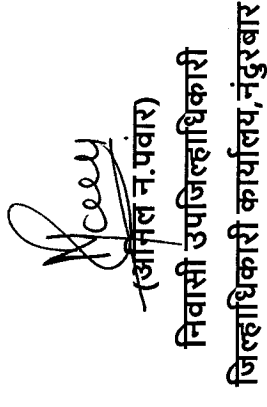 (अनिल न.पवार)
निवासी उपजिल्हाधिकारी
जिल्हाधिकारी कार्यालय,नंदुरबार